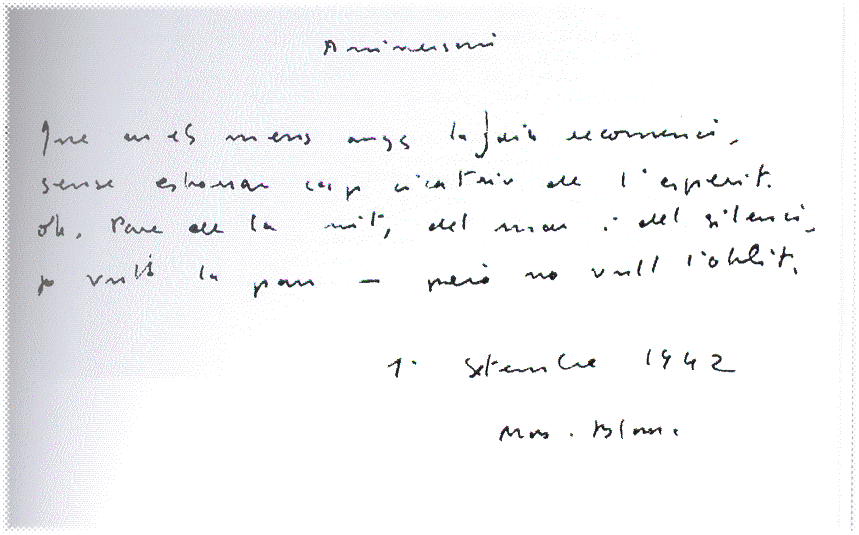 Aniversari
Que en els meus anys la joia recomenci,
sense esborrar cap cicatriu de l'esperit.
Oh, Pare de la nit, del mar i del silenci,
jo vull la pau — però no vull l'oblit.
1 Setembre 1942
Mas Blanc.